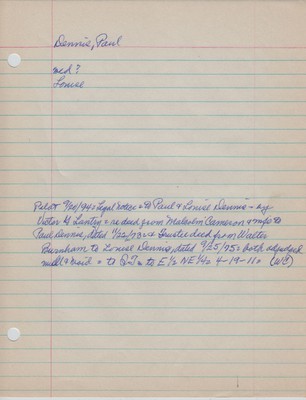 Dennis, Paul
md?
Louise
Pilot 9/20/94 = Legal Notice = to Paul & Louise Dennis -
Victor G. Lantry = re deed from Malcolm Cameron & wife to
Paul Dennis, dated 1/22/73 = & Trustee deed from Walter
Burnham to Louise Dennis, dated 9/25/75 = both adjudged
null & void = to Q-T = to E½ NE¼ = 4-19-11 =